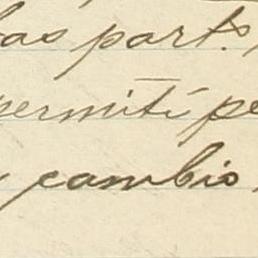 las part.s
permití pe
cambio